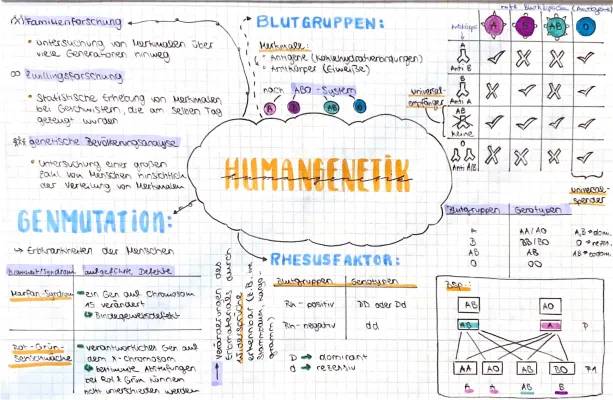 Familienforschung
• untersuchung von Merkmalen über
viele Generationen hinweg
Zwillingsforschung
• Statistische Erhebung von Merkmalen
bei Geschwistern, die am selben Tag
gezeugt wurden
genetische Bevölkerungsanalyse
• untersuchung einer großen
Zahl von Menschen hinsichtlich
der Verteilung von Merkmalen
GENMUTATION:
→ Erbkrankheiten der Menschen
Marfan-Syndrom
• ein Gen auf Chromosom
15 verändert
Bindegewebsdefekt
Rot-Grün-
• verantwortliches Gen auf
dem X-Chromosom
bestimmte Abstufungen
bei Rot & Grün können
nicht unterschieden werden
BLUTGRUPPEN:
Merkmale:
• Antigene
• Antikörper (Eiweiße)
nach AB0-System
A
AB
0
HUMANGENETIK
humangenetik
Veränderungen des
Erbmaterials durch
RHESUSFAKTOR:
Blutgruppen Genotypen
Rh-positiv DD oder Dd
Rh-negativ dd
D → dominant
d → rezessiv
A B AB 0
A
Anti B
B
Anti A
AB
Keine
0
Anti A/B
universal-
empfänger
universal-
spender
Blutgruppen Genotypen
A AA/A0 A,B → dom.
B BB/B0 0 → rez.
AB AB
0 00
Bsp.:
AB A0
AB A P
AA A0 AB B0 F1
A A AB B